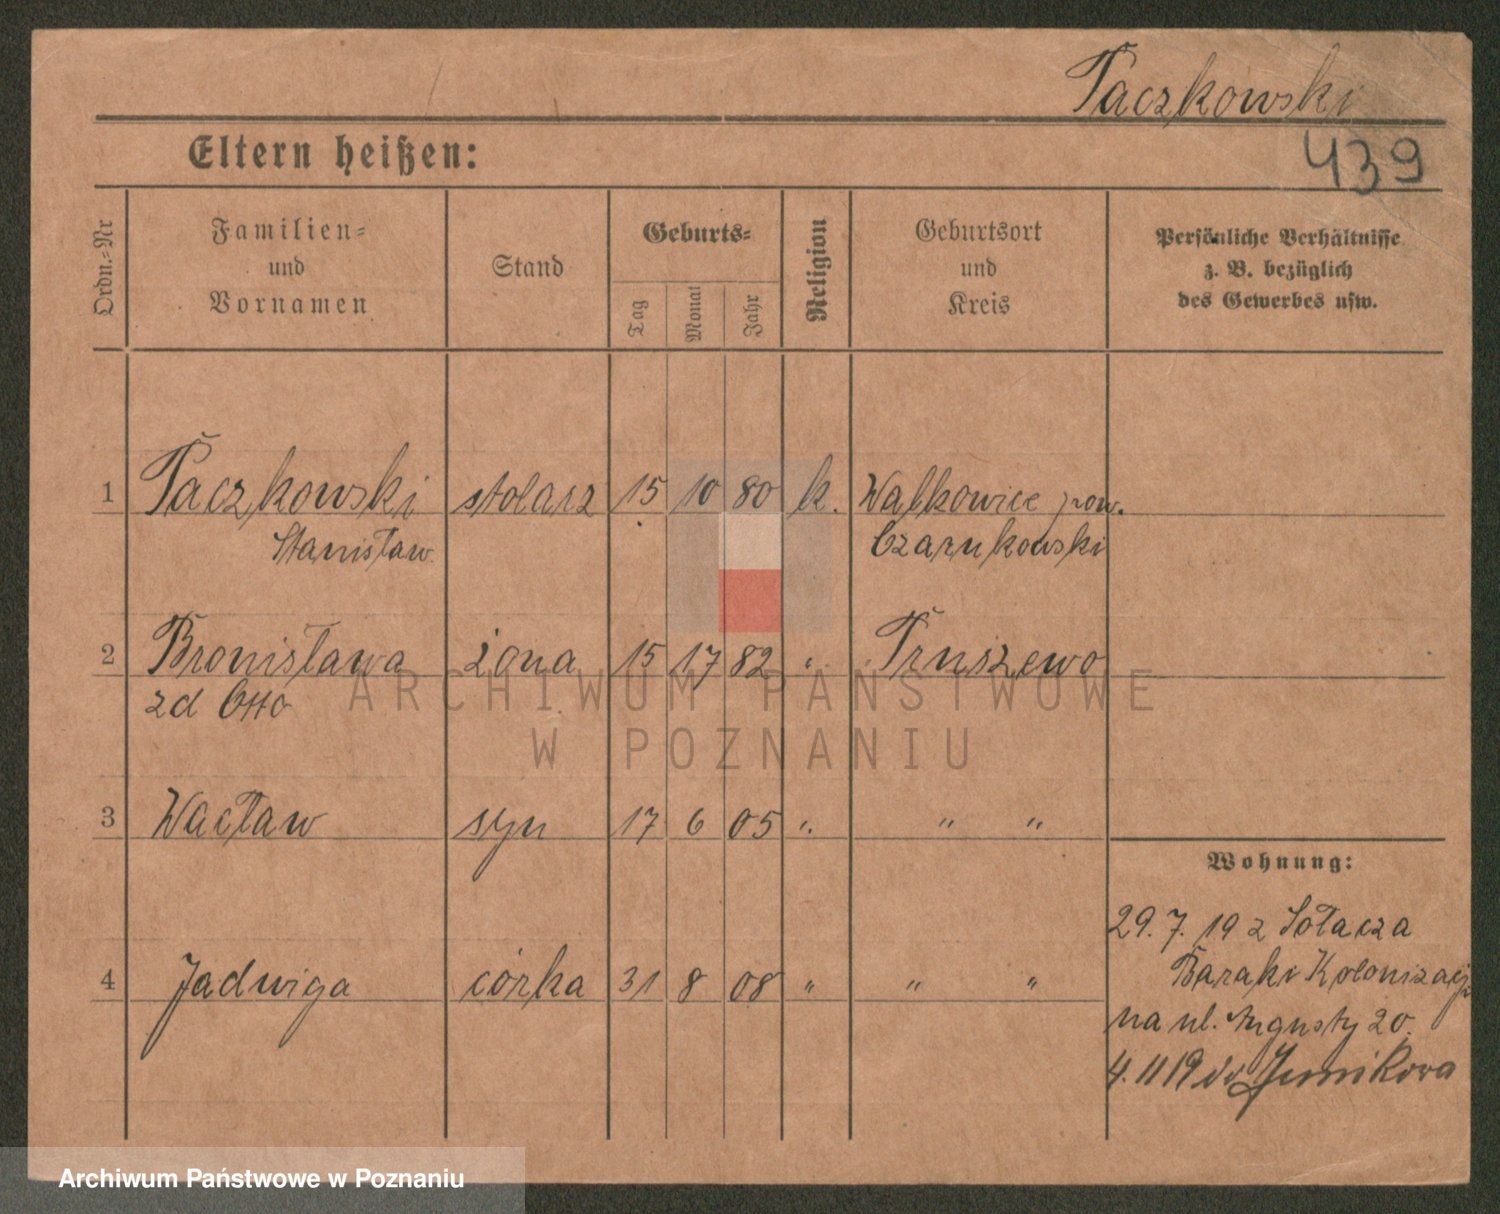 Paczkowski
439
Eltern heißen:
Ordn.-Nr
Familien-
und
Vornamen
Stand
Geburts-
Tag
Monat
Jahr
Religion
Geburtsort
und
Kreis
Persönliche Verhältnisse
z. B. bezüglich
des Gewerbes usw.
1 Paczkowski stolarz 15 10 80 k. Walkowice pow.
Stanisław Czarnkowski
2 Bronisława żona 15 17 82 " Pruszewo
zd Otto
3 Wacław syn 17 6 05 " " "
4 Jadwiga córka 31 8 08 " " "
Wohnung:
29.7.19 z Sołacza
Baraki Kolonizacji
na ul. Augusty 20.
4.11 19 do Junikowa
ARCHIWUM PAŃSTWOWE
W POZNANIU
Archiwum Państwowe w Poznaniu